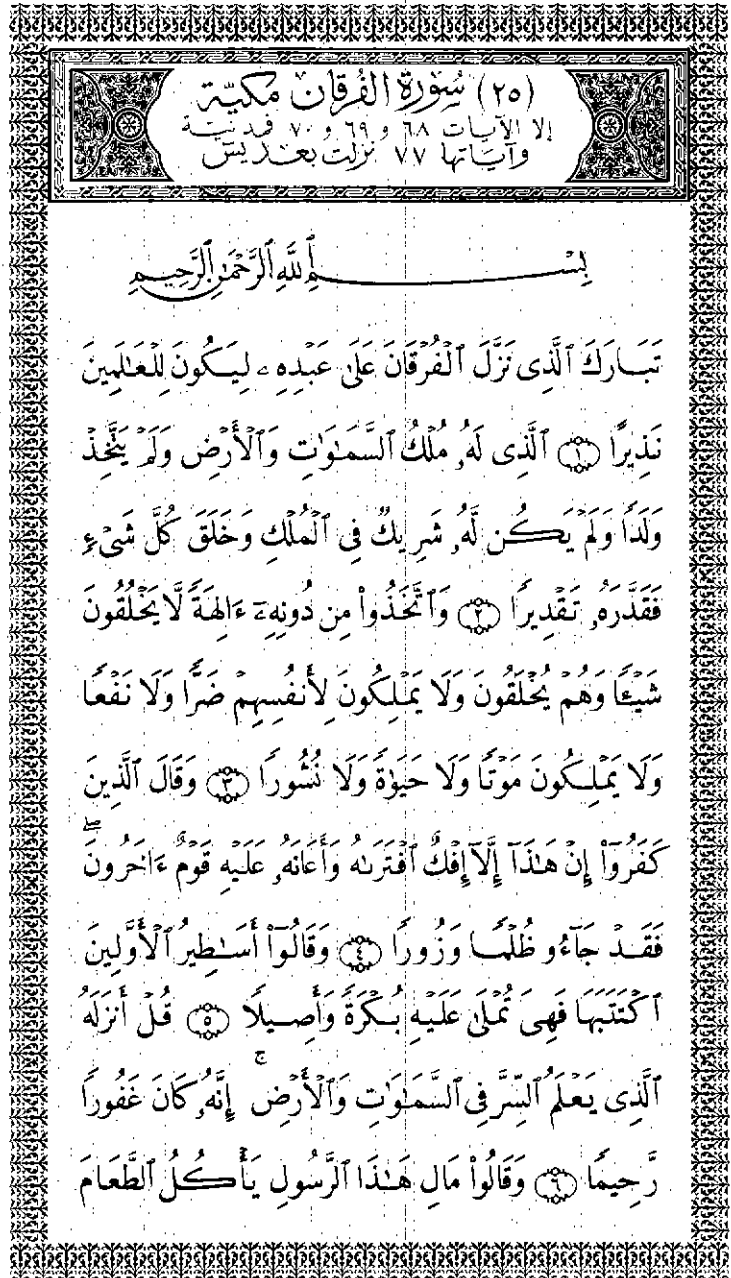 (٢٥) سُورَةُ الفُرقَان مَكيّة
إلا الآيات ٦٨ و ٦٩ و ٧٠ فمدنية
وآياتها ٧٧ نزلت بعد يسٓ
بِسْمِ ٱللَّهِ ٱلرَّحْمَٰنِ ٱلرَّحِيمِ
تَبَارَكَ ٱلَّذِى نَزَّلَ ٱلْفُرْقَانَ عَلَىٰ عَبْدِهِۦ لِيَكُونَ لِلْعَٰلَمِينَ
نَذِيرًا ﴿١﴾ ٱلَّذِى لَهُۥ مُلْكُ ٱلسَّمَٰوَٰتِ وَٱلْأَرْضِ وَلَمْ يَتَّخِذْ
وَلَدًا وَلَمْ يَكُن لَّهُۥ شَرِيكٌ فِى ٱلْمُلْكِ وَخَلَقَ كُلَّ شَىْءٍ
فَقَدَّرَهُۥ تَقْدِيرًا ﴿٢﴾ وَٱتَّخَذُواْ مِن دُونِهِۦٓ ءَالِهَةً لَّا يَخْلُقُونَ
شَيْـًٔا وَهُمْ يُخْلَقُونَ وَلَا يَمْلِكُونَ لِأَنفُسِهِمْ ضَرًّا وَلَا نَفْعًا
وَلَا يَمْلِكُونَ مَوْتًا وَلَا حَيَوٰةً وَلَا نُشُورًا ﴿٣﴾ وَقَالَ ٱلَّذِينَ
كَفَرُوٓاْ إِنْ هَٰذَآ إِلَّآ إِفْكٌ ٱفْتَرَىٰهُ وَأَعَانَهُۥ عَلَيْهِ قَوْمٌ ءَاخَرُونَۖ
فَقَدْ جَآءُو ظُلْمًا وَزُورًا ﴿٤﴾ وَقَالُوٓاْ أَسَٰطِيرُ ٱلْأَوَّلِينَ
ٱكْتَتَبَهَا فَهِىَ تُمْلَىٰ عَلَيْهِ بُكْرَةً وَأَصِيلًا ﴿٥﴾ قُلْ أَنزَلَهُ
ٱلَّذِى يَعْلَمُ ٱلسِّرَّ فِى ٱلسَّمَٰوَٰتِ وَٱلْأَرْضِۚ إِنَّهُۥ كَانَ غَفُورًا
رَّحِيمًا ﴿٦﴾ وَقَالُواْ مَالِ هَٰذَا ٱلرَّسُولِ يَأْكُلُ ٱلطَّعَامَ